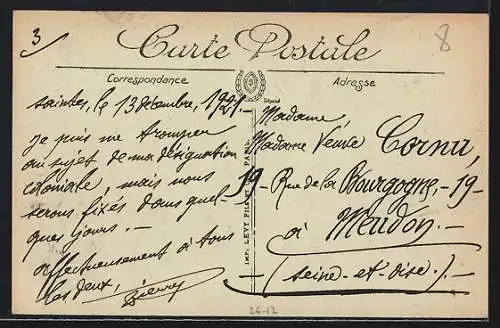 3
8
Carte Postale
Correspondance
Adresse
Saintes, le 13 décembre, 1921.
Je puis me tromper
au sujet de ma désignation
coloniale, mais nous
serons fixés dans quel-
ques jours. -
affectueusement à tous
les deux,
Pierre
IMP. LEVY FILS ET Cie PARIS
Madame,
Madame Veuve Cornu,
19 - Rue de la Bourgogne, - 19 -
à Meudon. -
(Seine-et-Oise). -
26-12